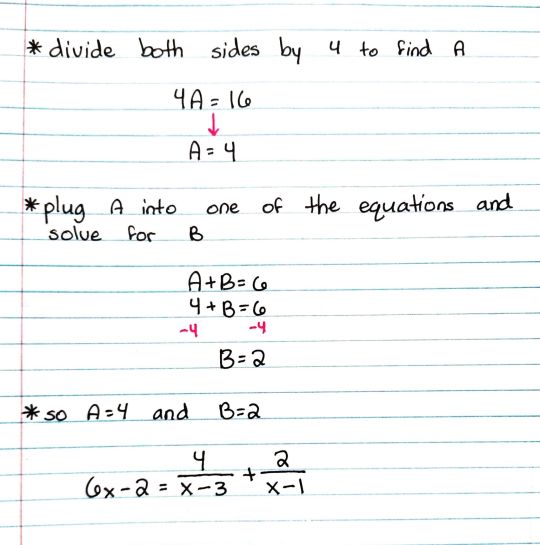 * divide both sides by 4 to find A
4A = 16
↓
A = 4
* plug A into one of the equations and
solve for B
A + B = 6
4 + B = 6
-4 -4
B = 2
* so A = 4 and B = 2
6x - 2 = 4/(x - 3) + 2/(x - 1)